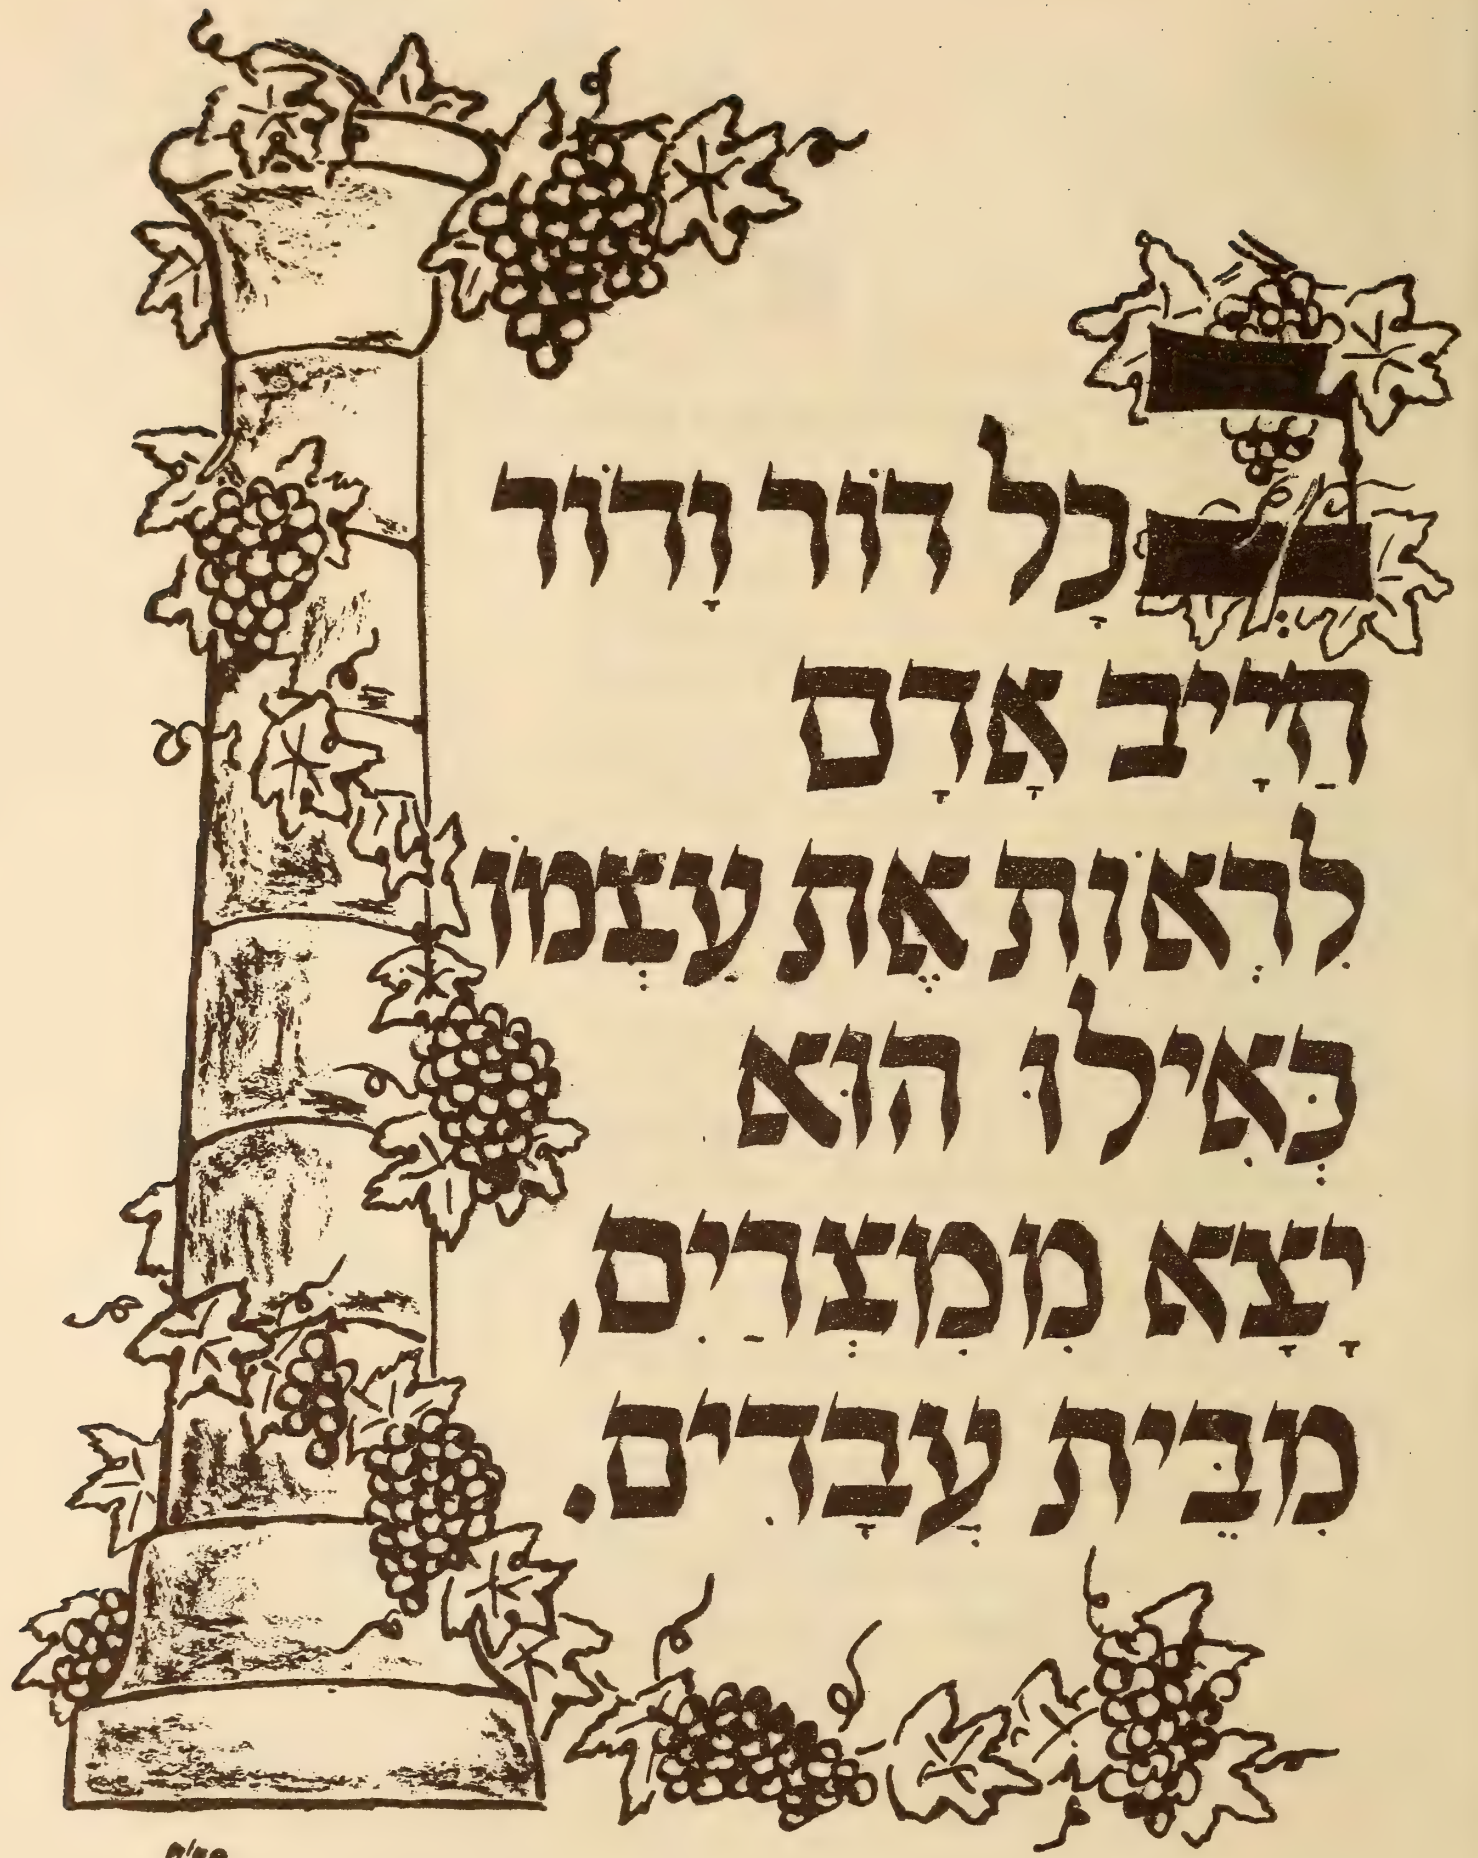 בְּכָל דּוֹר וָדוֹר
חַיָיב אָדָם
לִרְאוֹת אֶת עַצְמוֹ
כְּאִילוּ הוּא
יָצָא מִמִצְרַיִם,
מִבֵּית עֲבָדִים.